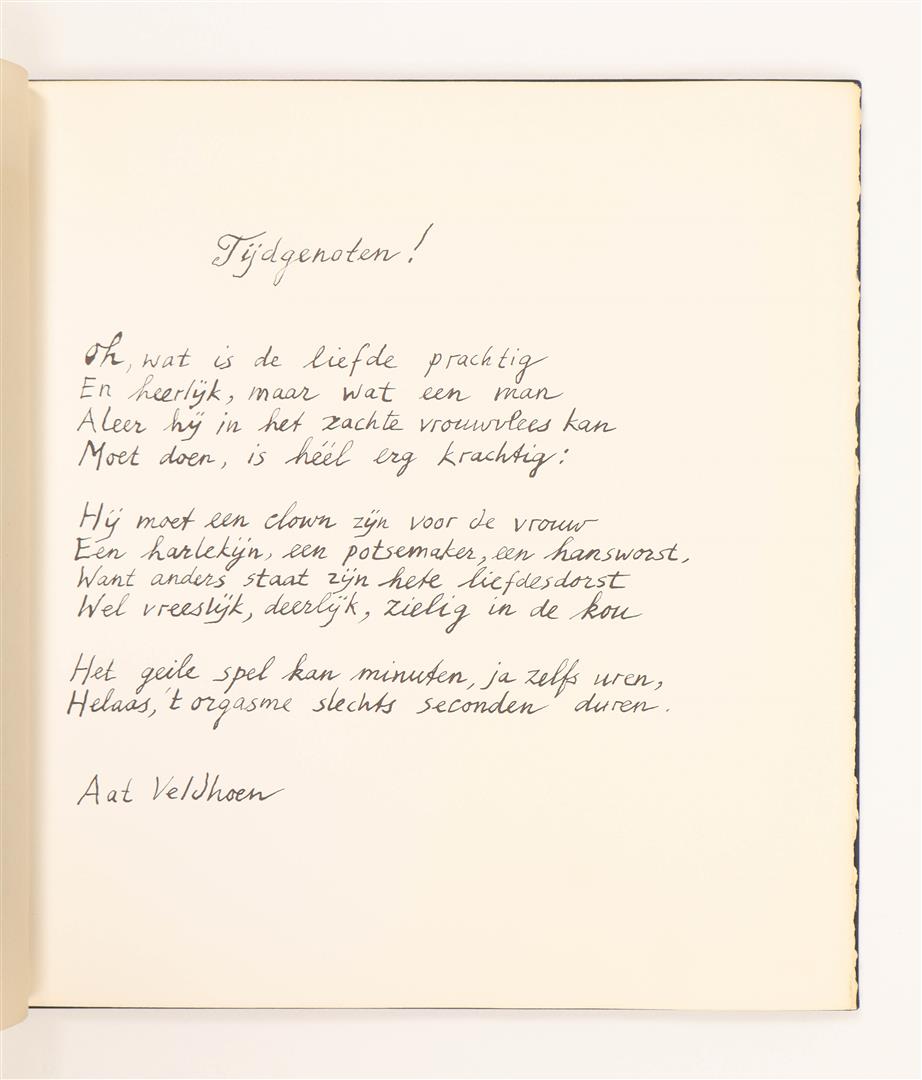 Tijdgenoten!
Oh, wat is de liefde prachtig
En heerlijk, maar wat een man
Aleer hij in het zachte vrouwvlees kan
Moet doen, is héél erg krachtig:
Hij moet een clown zijn voor de vrouw
Een harlekijn, een potsemaker, een hansworst,
Want anders staat zijn hete liefdesdorst
Wel vreeslijk, deerlijk, zielig in de kou
Het geile spel kan minuten, ja zelfs uren,
Helaas, 't orgasme slechts seconden duren.
Aat Veldhoen